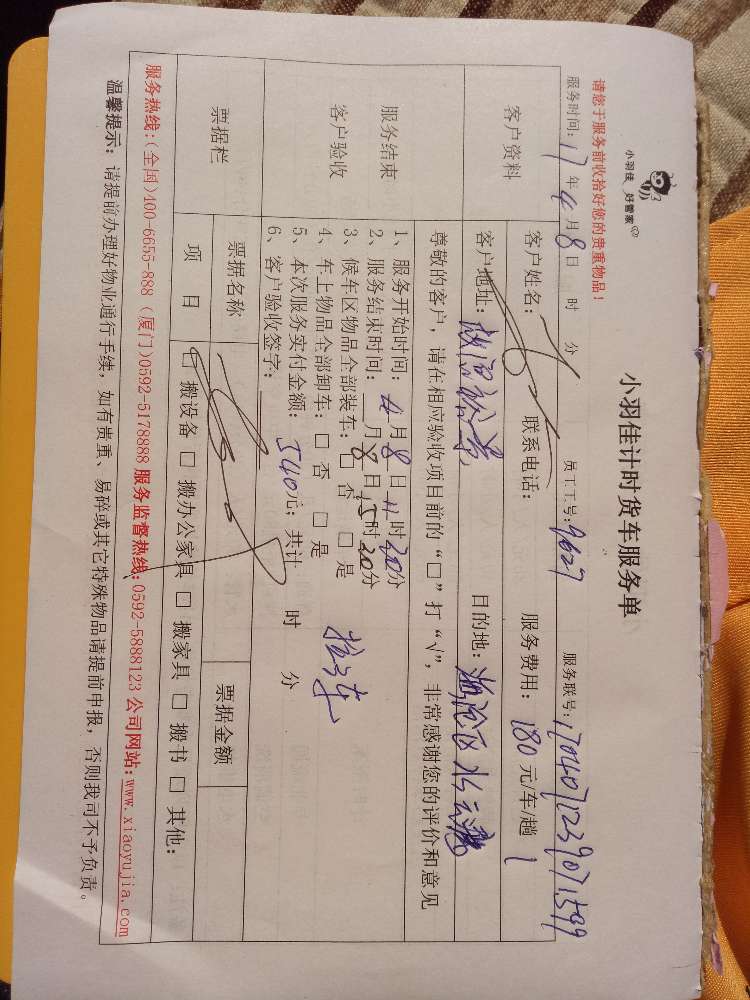 小羽佳 好管家
小羽佳计时货车服务单
请您于服务前收拾好您的贵重物品！
服务时间：17年4月8日 时 分 员工工号：9627 服务联号：1704071239071599
客户资料
客户姓名： 联系电话： 服务费用：180元/车/趟 1
客户地址： 目的地：
尊敬的客户，请在相应验收项目前的“□”打“√”，非常感谢您的评价和意见
服务结束
客户验收
1、服务开始时间：4月8日11时20分
2、服务结束时间：4月8日15时20分
3、候车区物品全部装车：□ 否 □ 是
4、车上物品全部卸车：□ 否 □ 是
5、本次服务实付金额：540元；共计 时 分
6、客户验收签字：
票据栏
票据名称 票据金额
项 目 □ 搬设备 □ 搬办公家具 □ 搬家具 □ 搬书 □ 其他：
服务热线：（全国）400-6655-888（厦门）0592-5178888 服务监督热线：0592-5888123 公司网站：www.xiaoyujia.com
温馨提示：请提前办理好物业通行手续，如有贵重、易碎或其它特殊物品请提前申报，否则我司不予负责。